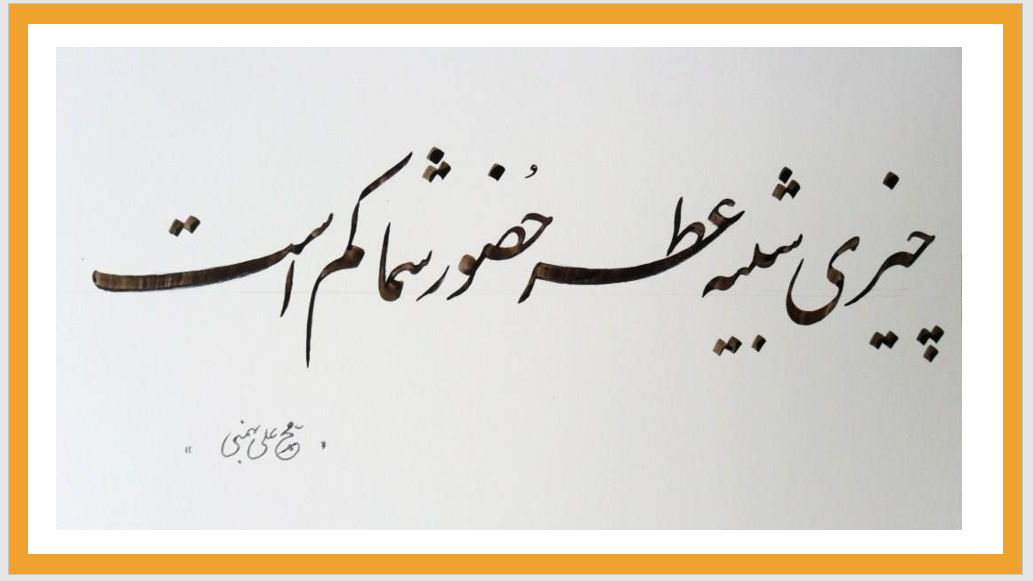 چیزی شبیه عطر حُضور شما کم است
« محمد علی بهمنی »